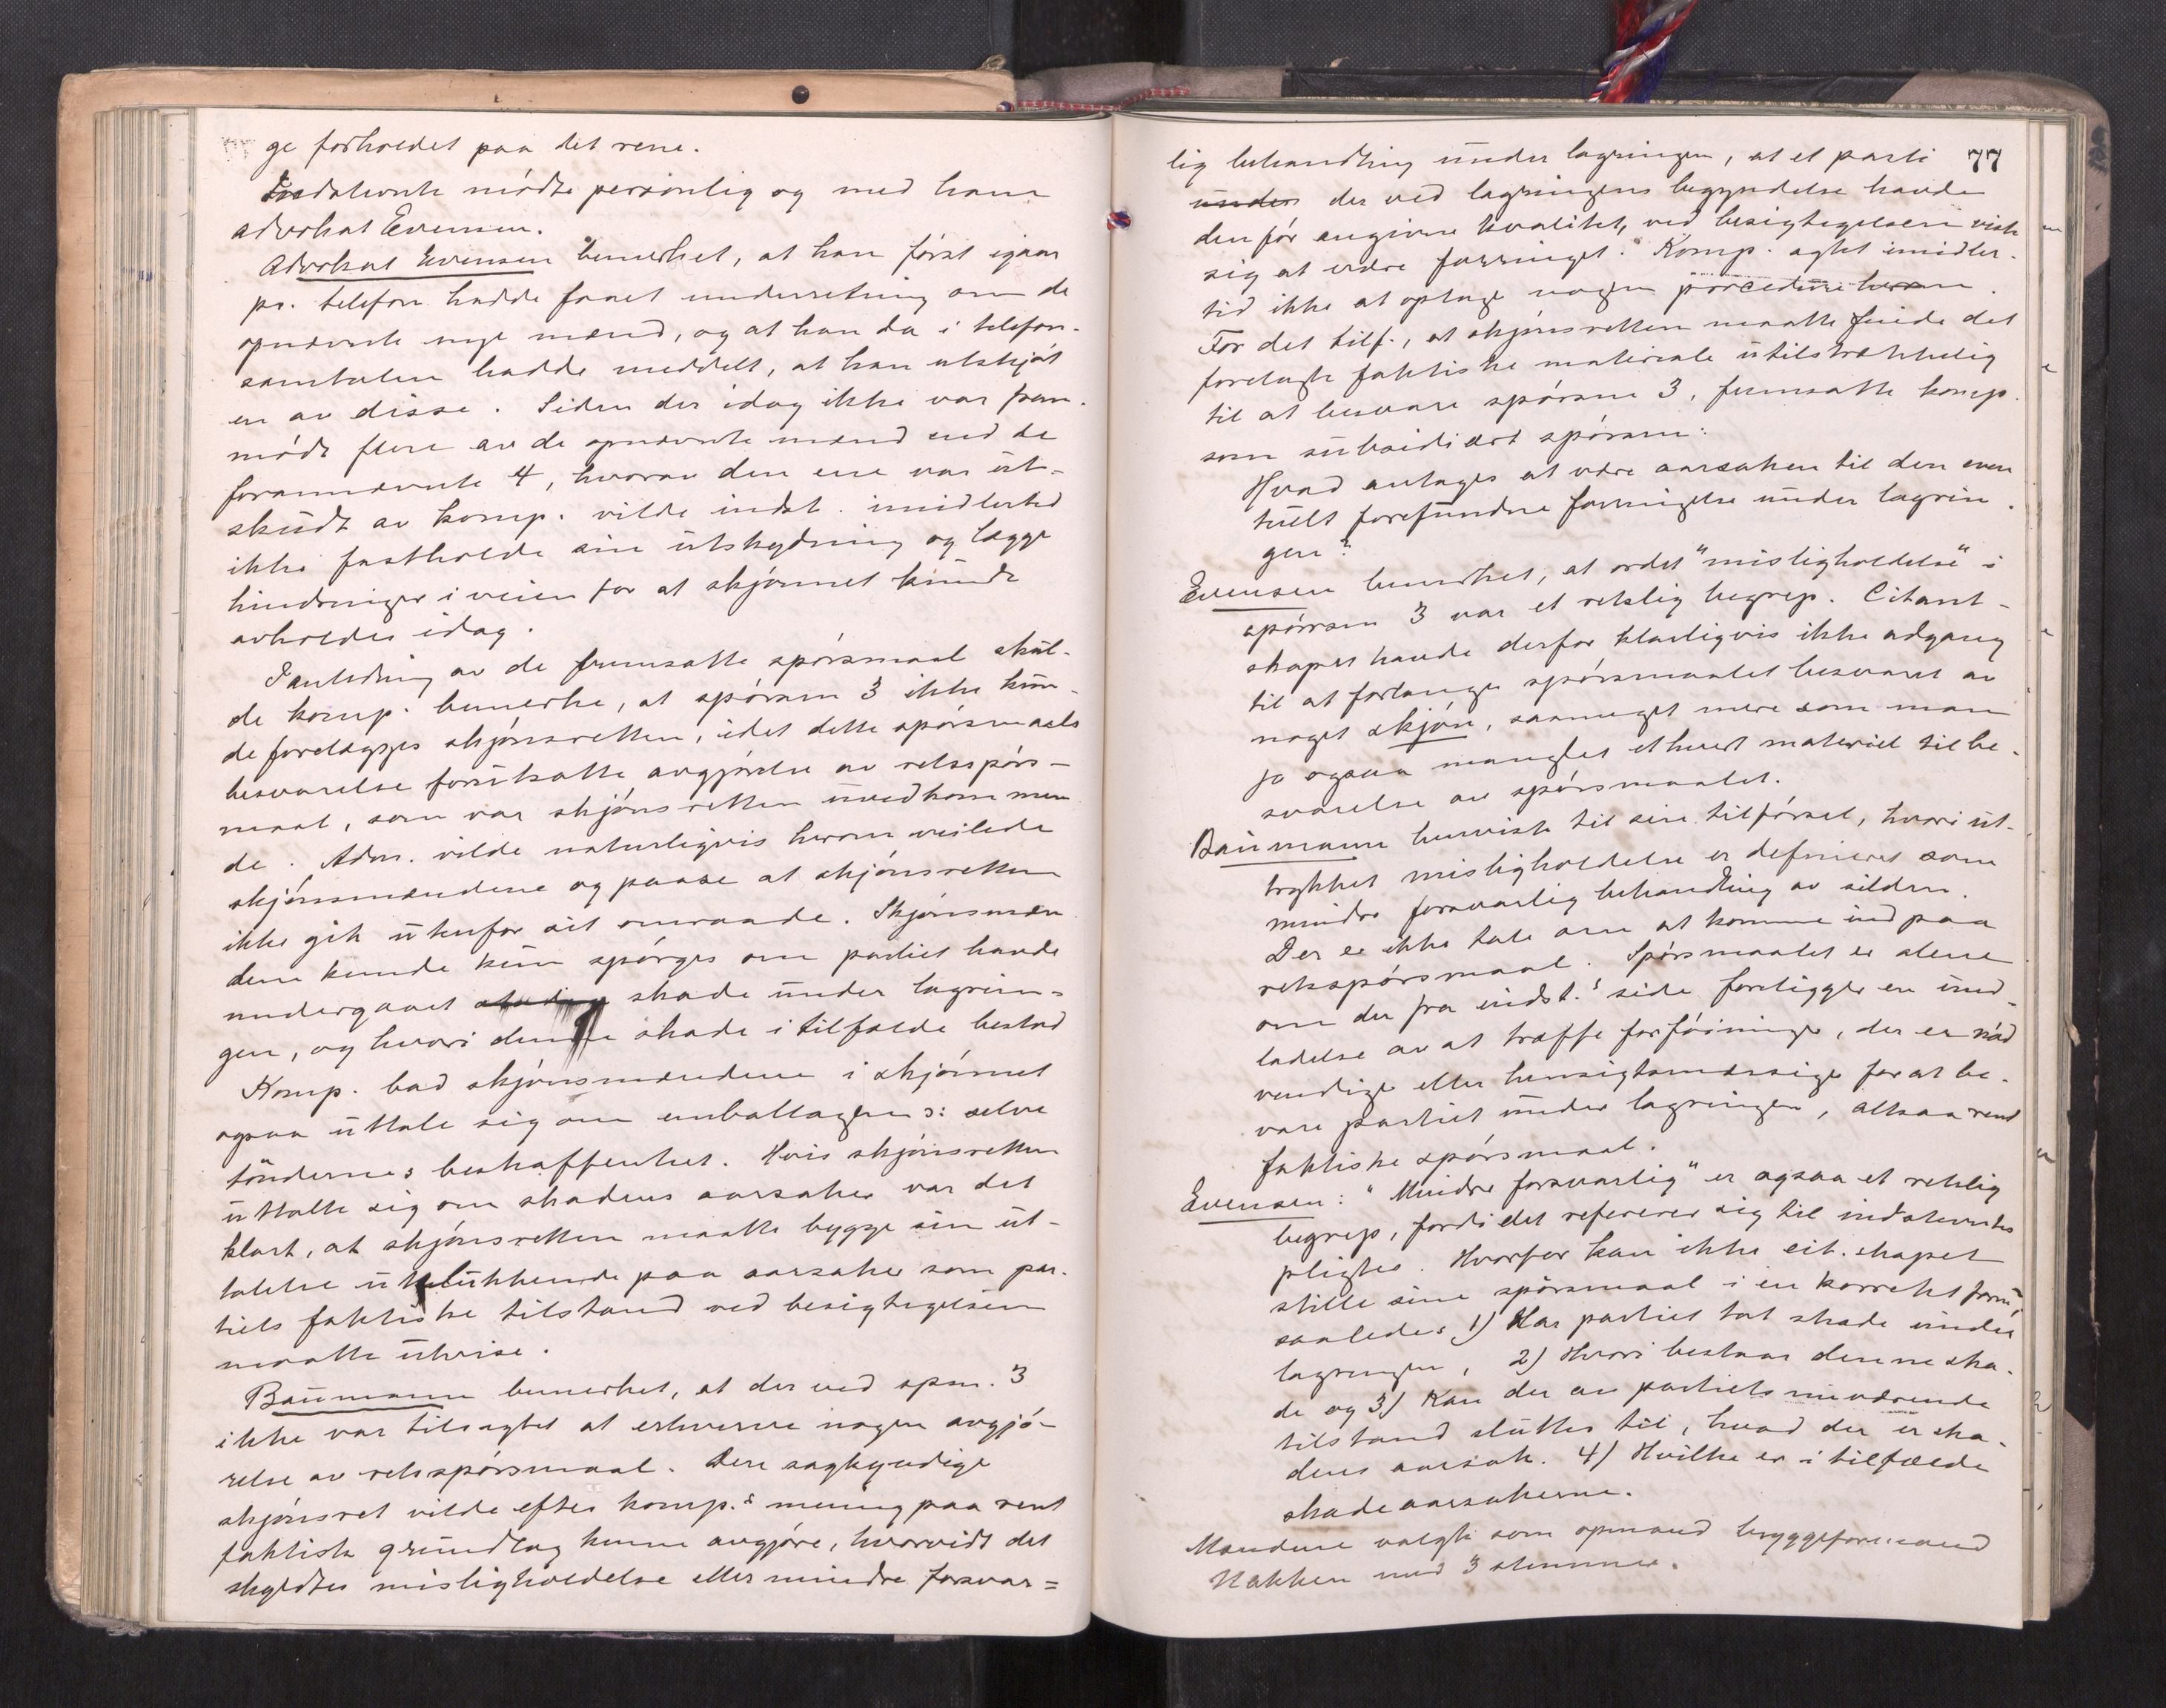 ge forholdet paa det rene.
Indstevnte mødte personlig og med ham
advokat Evensen.
Advokat Evensen bemerket, at han først igaar
pr. telefon hadde faaet underretning om de
opnævnte nye mænd, og at han da i telefon-
samtalen hadde meddelt, at han utskjøt
en av disse. Siden der idag ikke var frem-
mødt flere av de opnævnte mænd end de
forannævnte 4, hvorav den ene var ut-
skudt av komp. vilde indst. imidlertid
ikke fastholde sin utskydning og lægge
hindringer i veien for at skjønnet kunde
avholdes idag.
I anledning av de fremsatte spørsmaal skul-
de komp. bemerke, at spørsm 3 ikke kun-
de forelægges skjønsretten, idet dette spørsmaals
besvarelse forutsatte avgjørelse av retsspørs-
maal, som var skjønsretten uvedkommen
de. Adm. vilde naturligvis herom veilede
skjønsmændene og paase at skjønsretten
ikke gik utenfor sit omraade. Skjønsmæn
dene kunde kun spørges om partiet havde
undergaaet skade under lagrin-
gen, og hvori denne skade i tilfælde bestod
Komp. bad skjønsmændene i skjønnet
ogsaa uttale sig om emballagen ɔ: selve
tøndernes beskaffenhet. Hvis skjønsretten
uttalte sig om skadens aarsaker var det
klart, at skjønsretten maatte bygge sin ut-
talelse utelukkende paa aarsaker som par-
tiets faktiske tilstand ved besigtigelsen
maatte utvise.
Baumann bemerket, at der ved spm. 3
ikke var tilsigtet at erhverve nogen avgjø-
relse av retsspørsmaal. Den sagkyndige
skjønsret vilde efter komp.s mening paa rent
faktisk grundlag kunne avgjøre, hvorvidt det
skyldtes misligholdelse eller mindre forsvar=
77
lig behandling under lagringen, at et parti
under der ved lagringens begyndelse havde
den før angivne kvalitet, ved besigtigelsen viste
sig at være forringet. Komp. agtet imidler-
tid ikke at optage nogen procedure herom.
For det tilf., at skjønsretten maatte finde det
forelagte faktiske materiale utilstrækkelig
til at besvare spørsm 3, fremsatte komp.
som subsidiært spørsm:
Hvad antages at være aarsaken til den even
tuelt forefundne forringelse under lagrin-
gen?
Evensen bemerket, at ordet "misligholdelse" i
spørsm 3 var et retslig begrep. Citant-
skapet havde derfor klarligvis ikke adgang
til at forlange spørsmaalet besvaret av
noget skjøn, saameget mere som man
jo ogsaa manglet ethvert materiel til be-
svarelse av spørsmaalet.
Baumann henviste til sin tilførsel, hvori ut-
trykket misligholdelse er defineret som
mindre forsvarlig behandling av silden.
Der er ikke tale om at komme ind paa
retsspørsmaal. Spørsmaalet er alene
om der fra indst.s side foreligger en und-
ladelse av at træffe forføininger, der er nød
vendige eller hensigtsmæssige for at be-
vare partiet under lagringen, altsaa rent
faktiske spørsmaal.
Evensen: "Mindre forsvarlig" er ogsaa et retslig
begrep, fordi det refererer sig til indstevntes
pligter. Hvorfor kan ikke cit.skapet
stille sine spørsmaal i en korrekt form,
saaledes 1) Har partiet tat skade under
lagringen, 2) Hvori bestaar denne ska-
de og 3) Kan der av partiets nuværende
tilstand sluttes til, hvad der er ska-
dens aarsak. 4) Hvilke er i tilfælde
skadeaarsakerne.
Mændene valgte som opmand bryggeformand
Hakken med 3 stemmer.